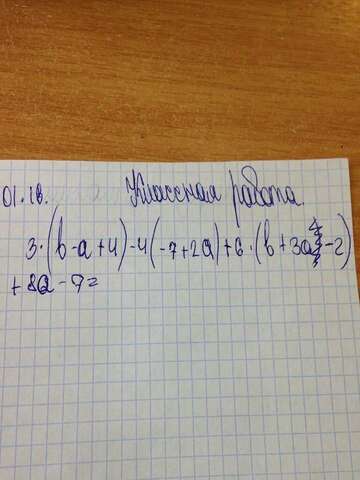 01.12. Классная работа.
3·(b-a+4)-4(-7+2a)+6·(b+3a-2)
+8a-7=